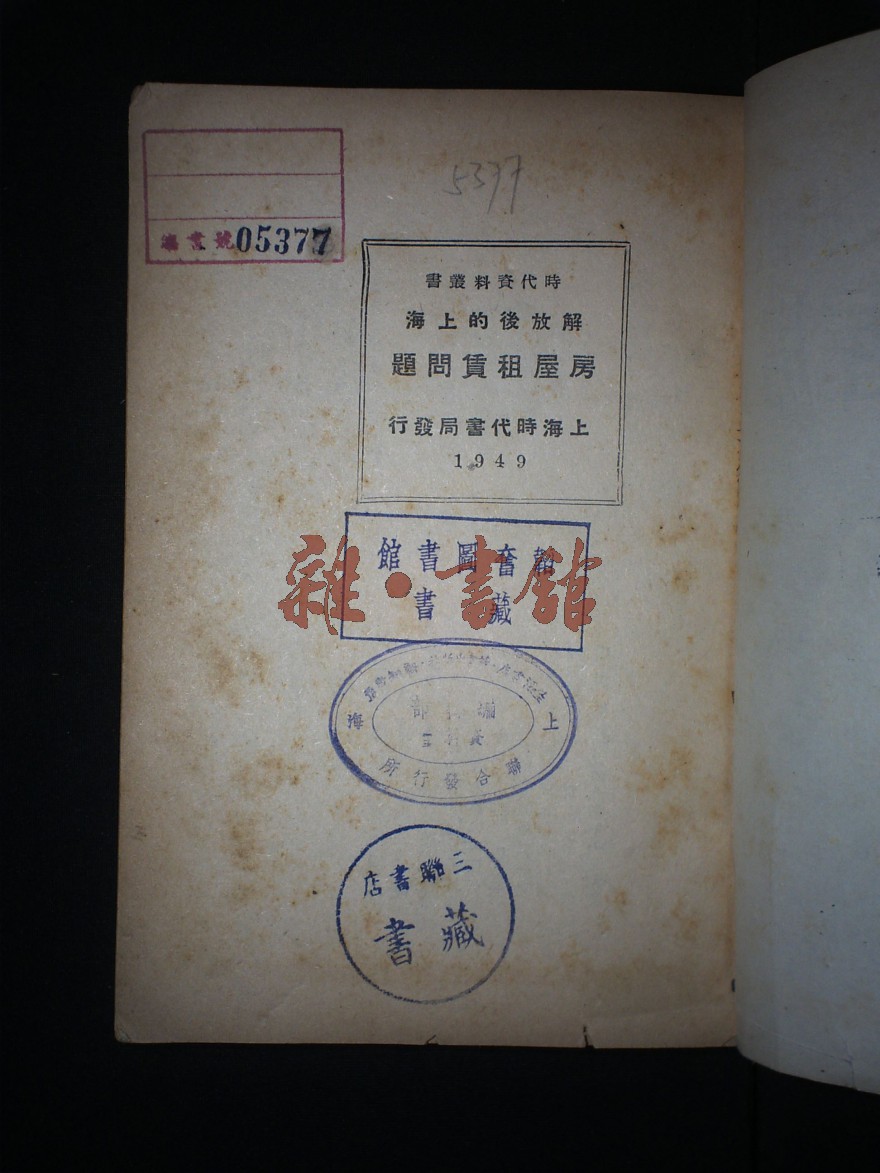 5377
書號05377
時代資料叢書
解放後的上海
房屋租賃問題
上海時代書局發行
1949
韜奮圖書館
藏書
雜·書館
上海
聯合發行所
三聯書店
藏書